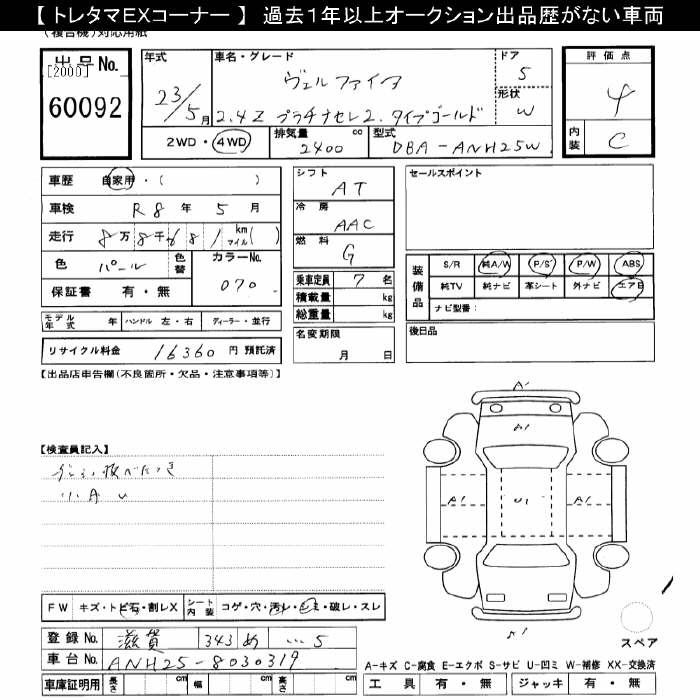 【 トレタマEXコーナー 】 過去1年以上オークション出品歴がない車両
(複合機)対応用紙
出品No. [2000] 60092
年式 23/5月
車名・グレード ヴェルファイア
2.4Z プラチナセレ2.タイプゴールド
ドア 5
形状 W
2WD・4WD 排気量 2400 cc 型式 DBA-ANH25W
評価点 4
内装 C
車歴 自家用・( )
車検 R8年 5月
走行 8万8千681 km マイル( )
色 パール 色替 カラーNo. 070
保証書 有・無
モデル年式 年 ハンドル 左・右 ディーラー・並行
リサイクル料金 16360 円 預託済
シフト AT
冷房 AAC
燃料 G
乗車定員 7名
積載量 kg
総重量 kg
名変期限 月 日
セールスポイント
装備品 S/R 純A/W P/S P/W ABS
純TV 純ナビ 革シート 外ナビ エアB
ナビ型番:
後日品
【出品店申告欄(不良箇所・欠品・注意事項等)】
【検査員記入】
小A U
A1
A1
A1 U1 A1
FW キズ・トビ石・割レX シート内装 コゲ・穴・汚レ・シミ・破レ・スレ
登録No. 滋賀 343 め …5
車台No. ANH25-8030319
車庫証明用 長さ cm 幅 cm 高さ cm
スペア
A-キズ C-腐食 E-エクボ S-サビ U-凹ミ W-補修 XX-交換済
工具 有・無 ジャッキ 有・無